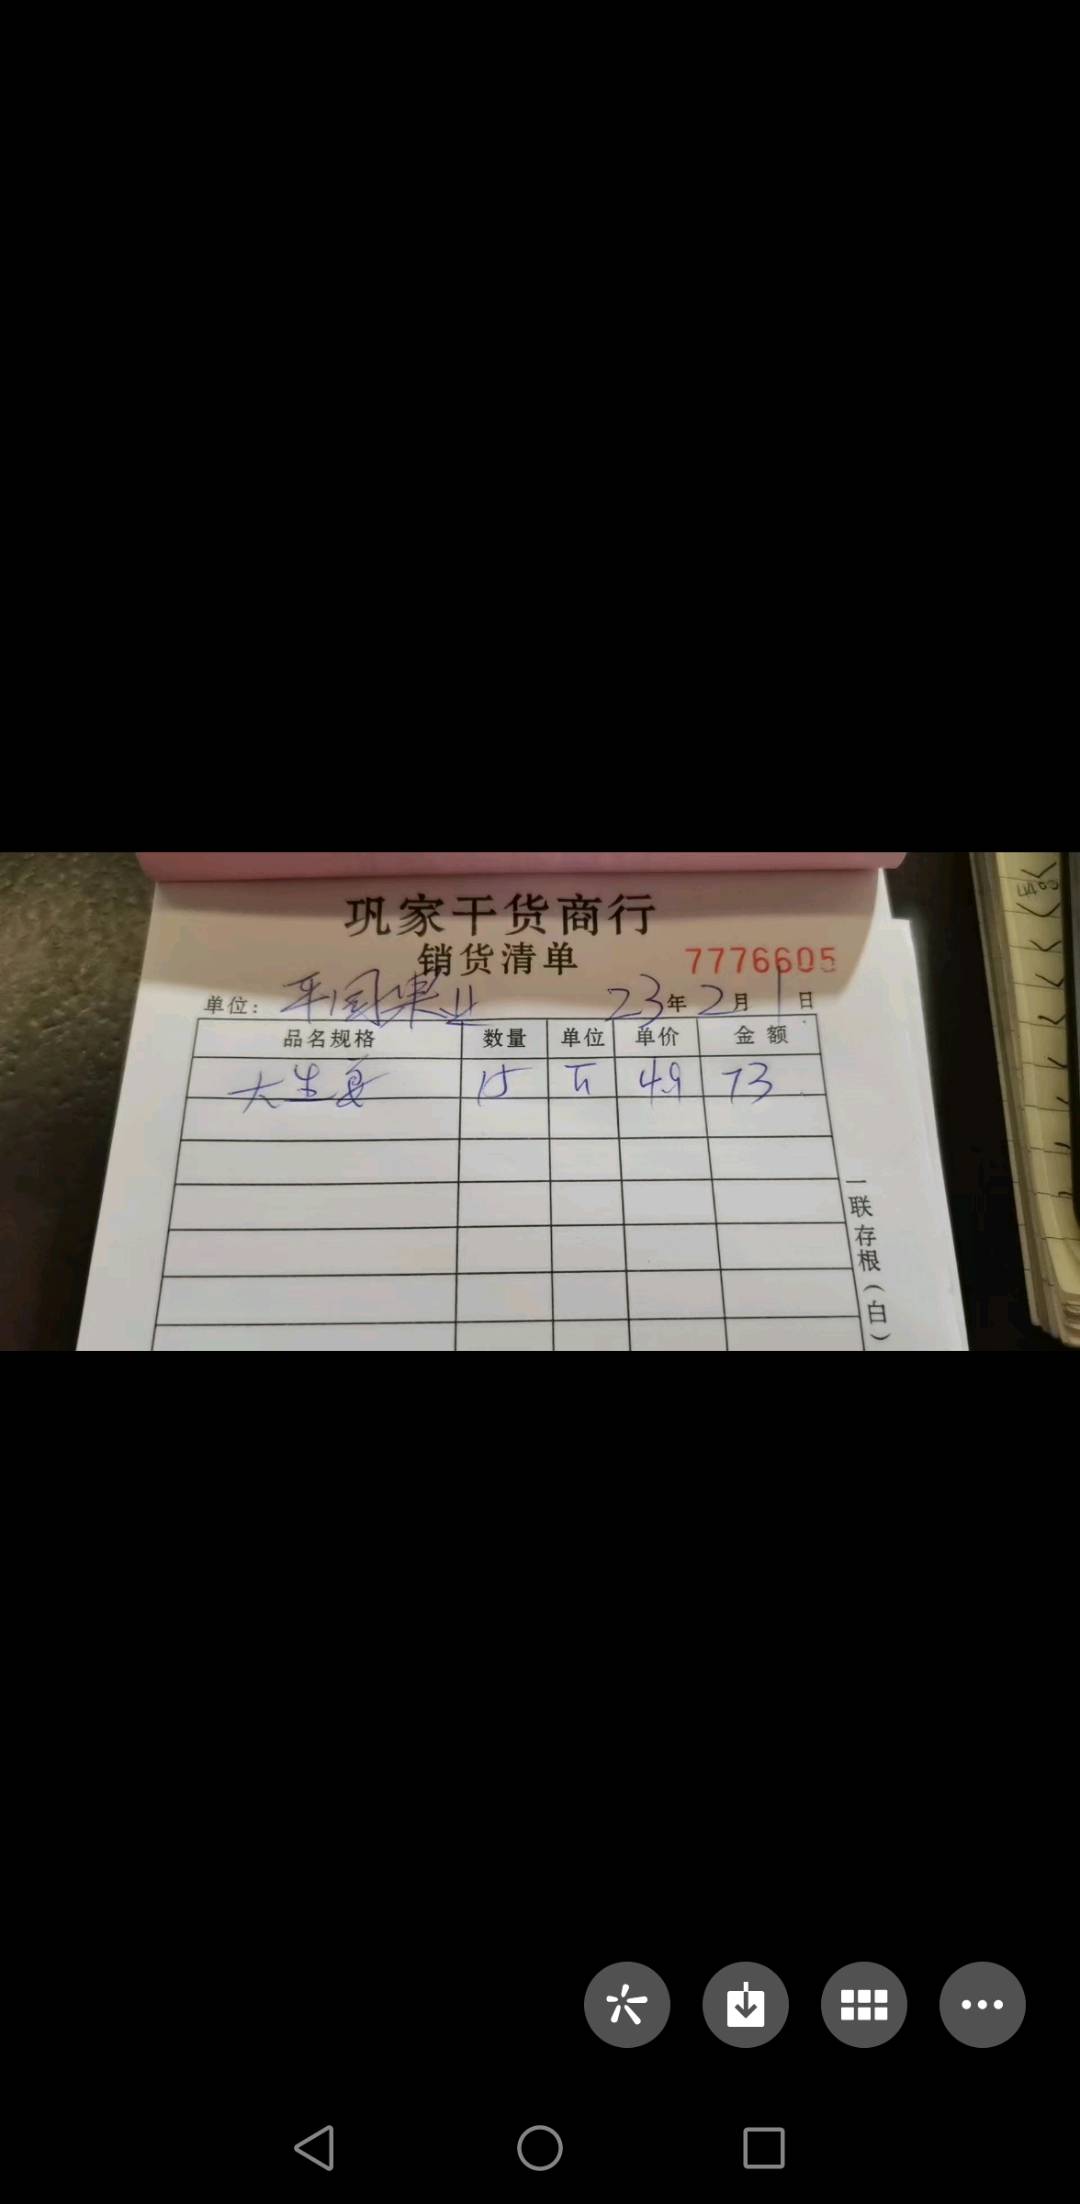 巩家干货商行
销货清单 7776605
单位: 平国果业 23年2月1日
品名规格 数量 单位 单价 金额
大生 15 斤 4.9 73
一联存根(白)